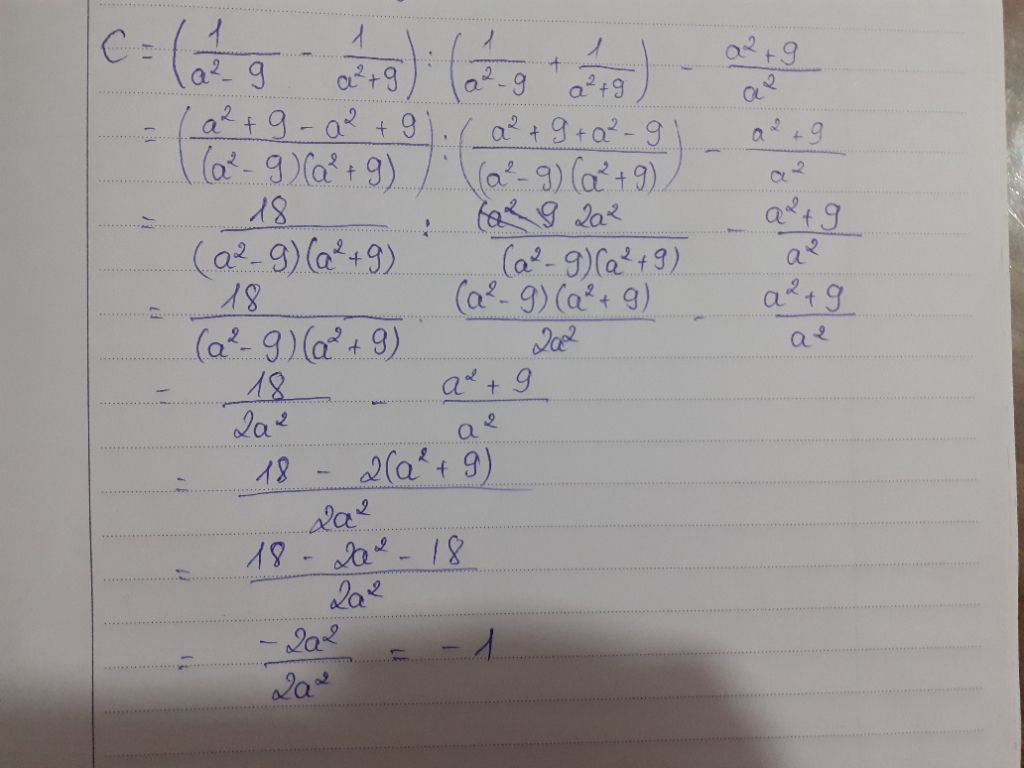 C = (1/(a²-9) - 1/(a²+9)) : (1/(a²-9) + 1/(a²+9)) - (a²+9)/a²
= ((a²+9-a²+9)/((a²-9)(a²+9))) : ((a²+9+a²-9)/((a²-9)(a²+9))) - (a²+9)/a²
= 18/((a²-9)(a²+9)) : 2a²/((a²-9)(a²+9)) - (a²+9)/a²
= 18/((a²-9)(a²+9)) . ((a²-9)(a²+9))/2a² - (a²+9)/a²
= 18/2a² - (a²+9)/a²
= (18 - 2(a²+9))/2a²
= (18 - 2a² - 18)/2a²
= -2a²/2a² = -1